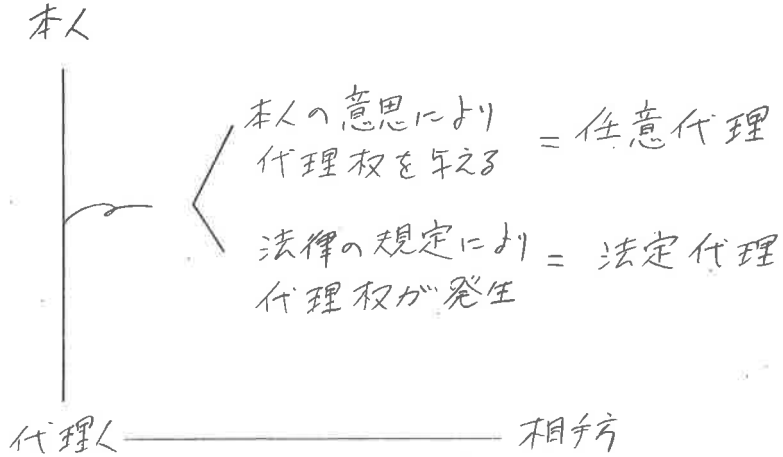 本人
本人の意思により
代理权を与える = 任意代理
法律の規定により
代理权が発生 = 法定代理
代理人
相手方